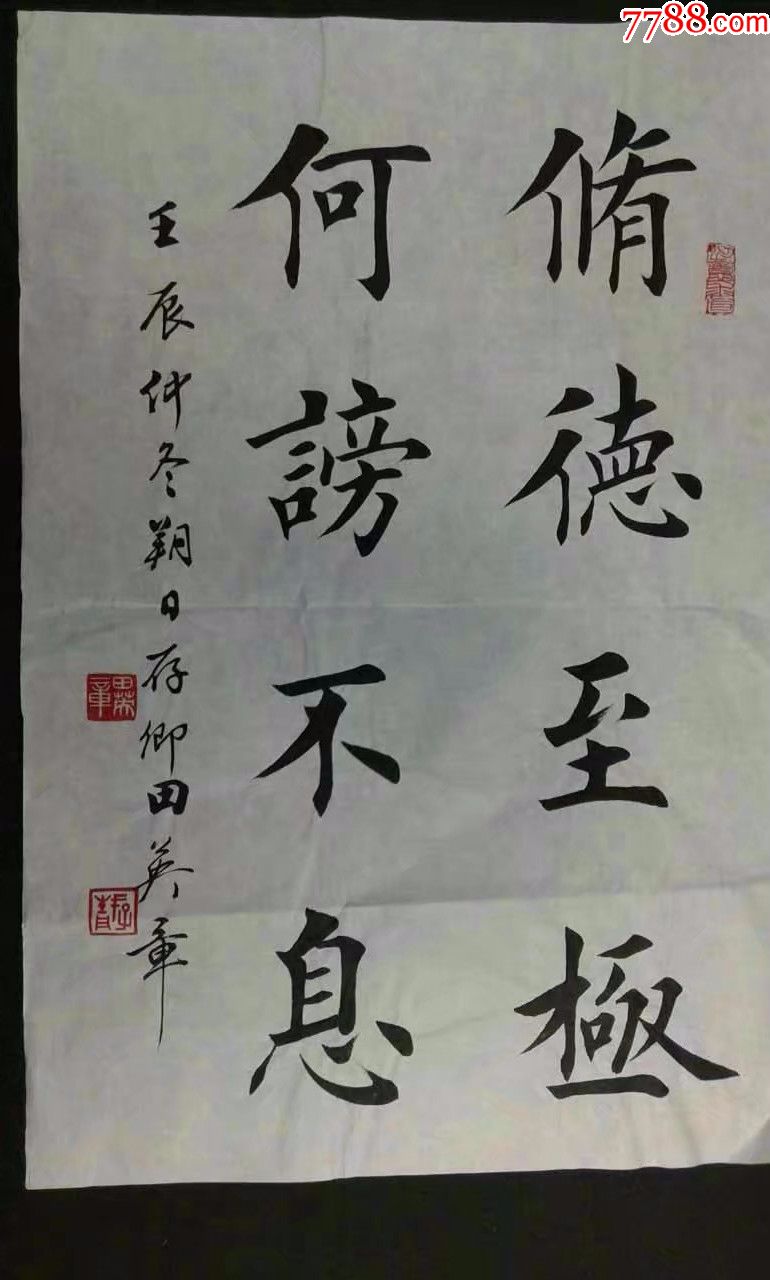 7788.com
脩德至極
何謗不息
壬辰仲冬朔日存卿田英章